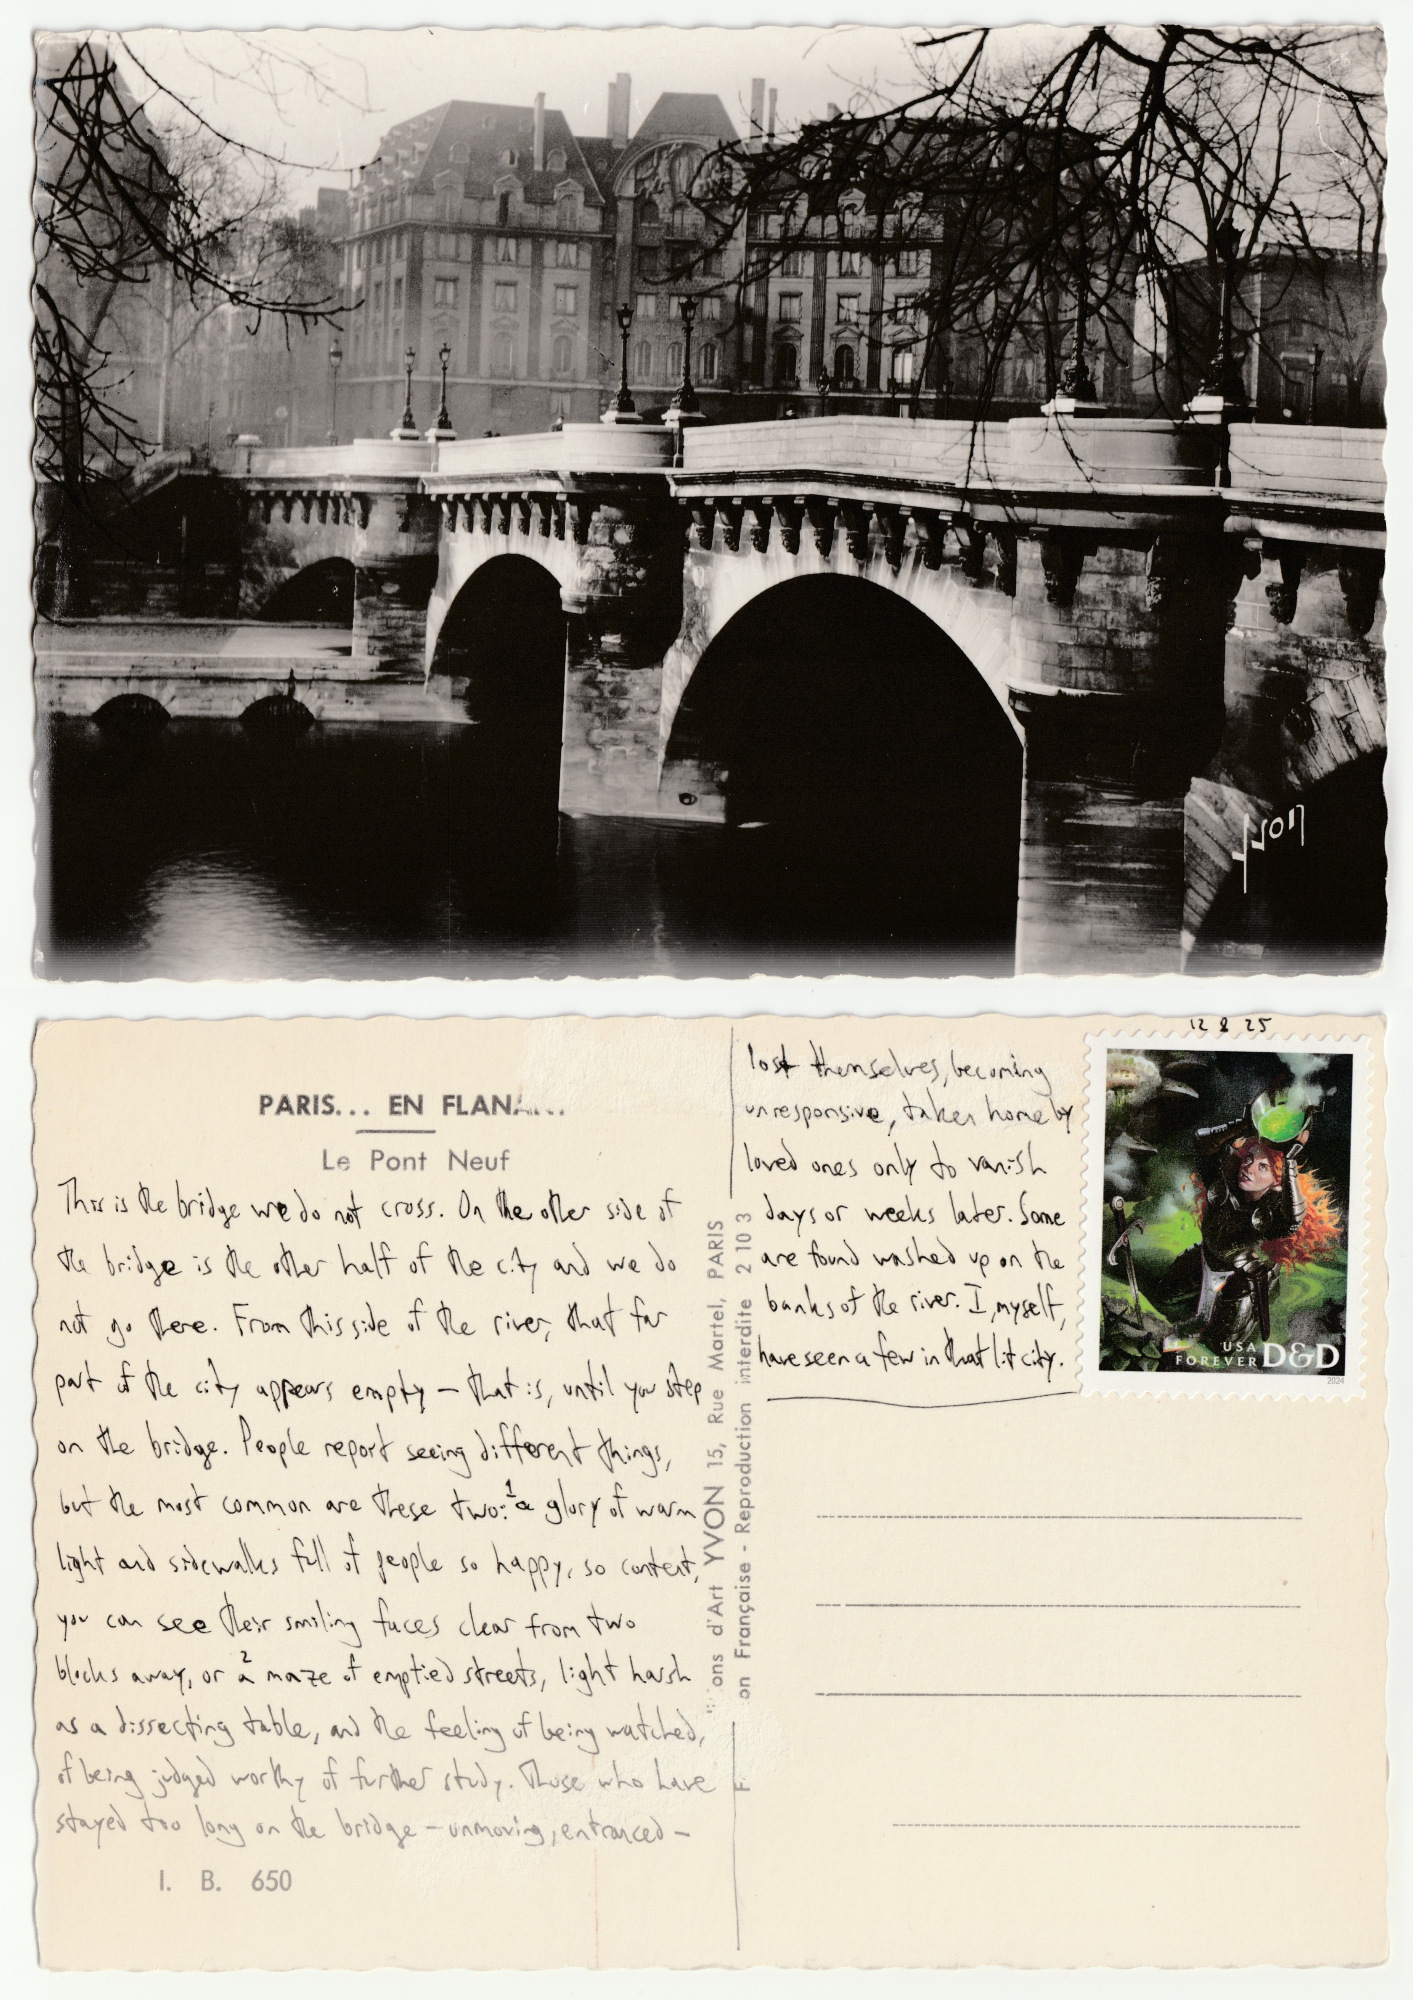 yvon
PARIS... EN FLANA
Le Pont Neuf
This is the bridge we do not cross. On the other side of
the bridge is the other half of the city and we do
not go there. From this side of the river, that far
part of the city appears empty – that is, until you step
on the bridge. People report seeing different things,
but the most common are these two: 1 a glory of warm
light and sidewalks full of people so happy, so content,
you can see their smiling faces clear from two
blocks away, or 2 a maze of emptied streets, light harsh
as a dissecting table, and the feeling of being watched,
of being judged worthy of further study. Those who have
stayed too long on the bridge – unmoving, entranced –
I. B. 650
ons d'Art YVON 15, Rue Martel, PARIS
F on Française - Reproduction interdite 2 10 3
lost themselves, becoming
unresponsive, taken home by
loved ones only to vanish
days or weeks later. Some
are found washed up on the
banks of the river. I, myself,
have seen a few in that lit city.
12 8 25
USA
FOREVER D&D
2024